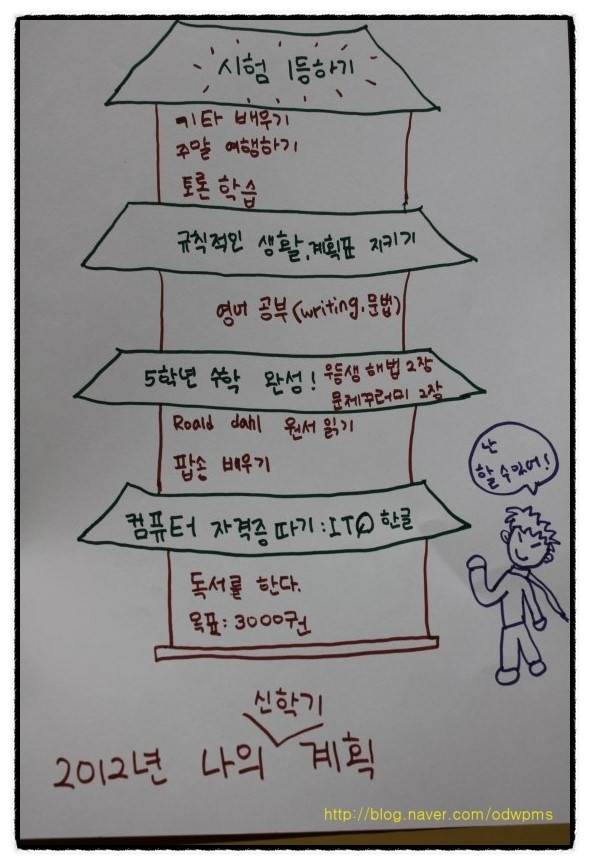 시험 1등하기
기타 배우기
주말 여행하기
토론 학습
규칙적인 생활, 계획표 지키기
영어 공부(writing.문법)
5학년 수학 완성! 우등생 해법 2장
문제꾸러미 2장
Roald dahl 원서 읽기
팝송 배우기
컴퓨터 자격증 따기 : ITQ 한글
독서를 한다.
목표: 3000권
난
할 수 있어!
신학기
2012년 나의 계획
http://blog.naver.com/odwpms